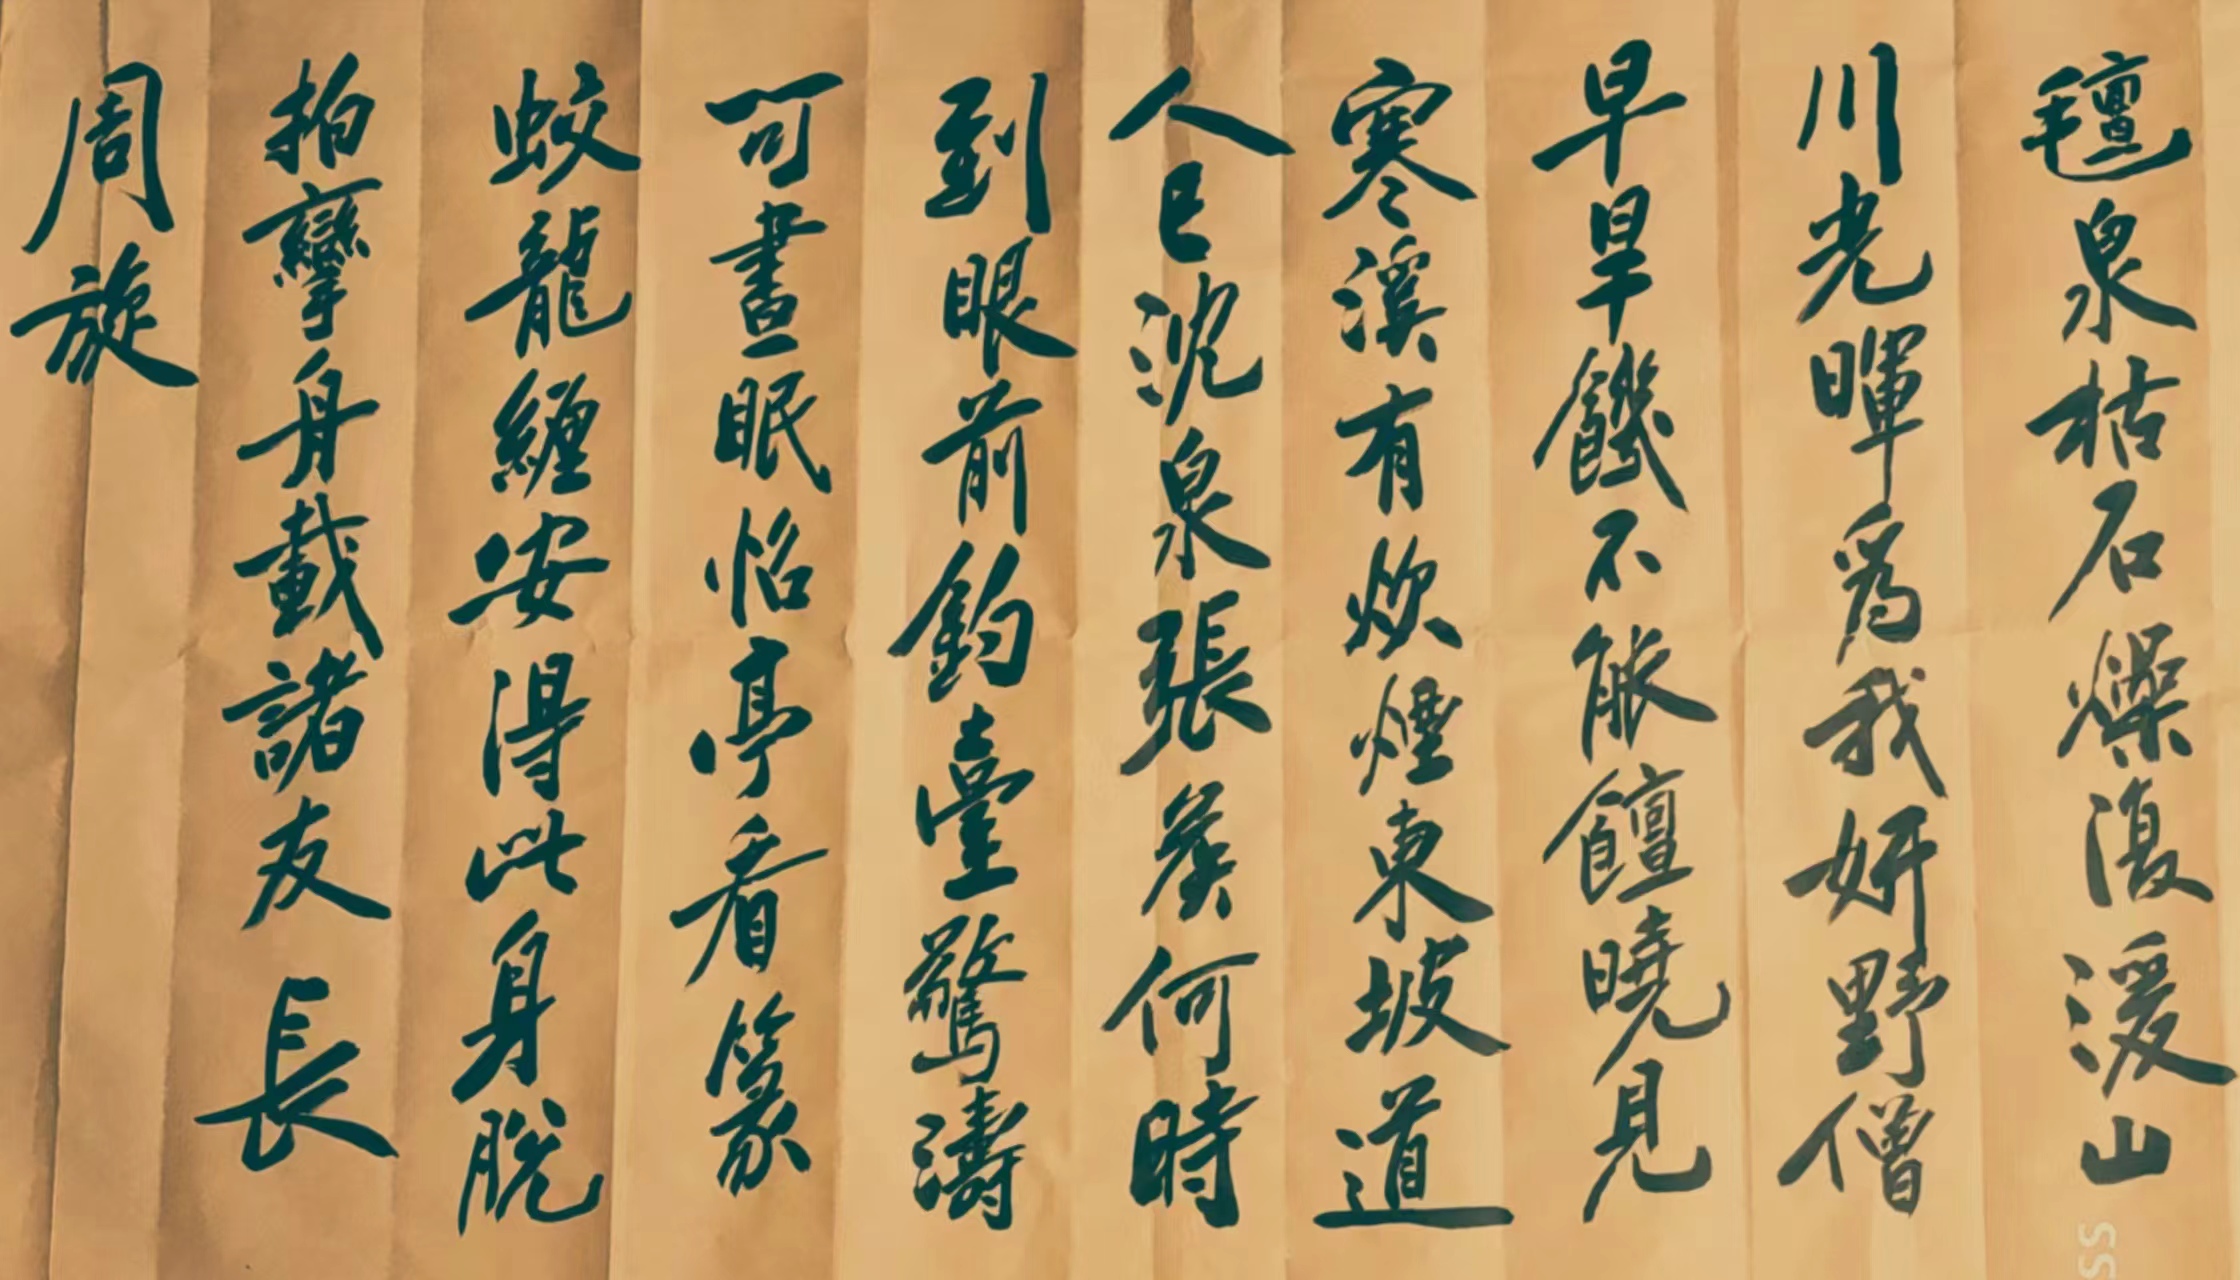 氊泉枯石燥復湲山
川光暉為我妍野僧
早旱饑不能饘曉見
寒溪有炊煙東坡道
人已沈泉張侯何時
到眼前釣臺驚濤
可晝眠怡亭看篆
蛟龍纏安得此身脫
拘攣舟載諸友長
周旋